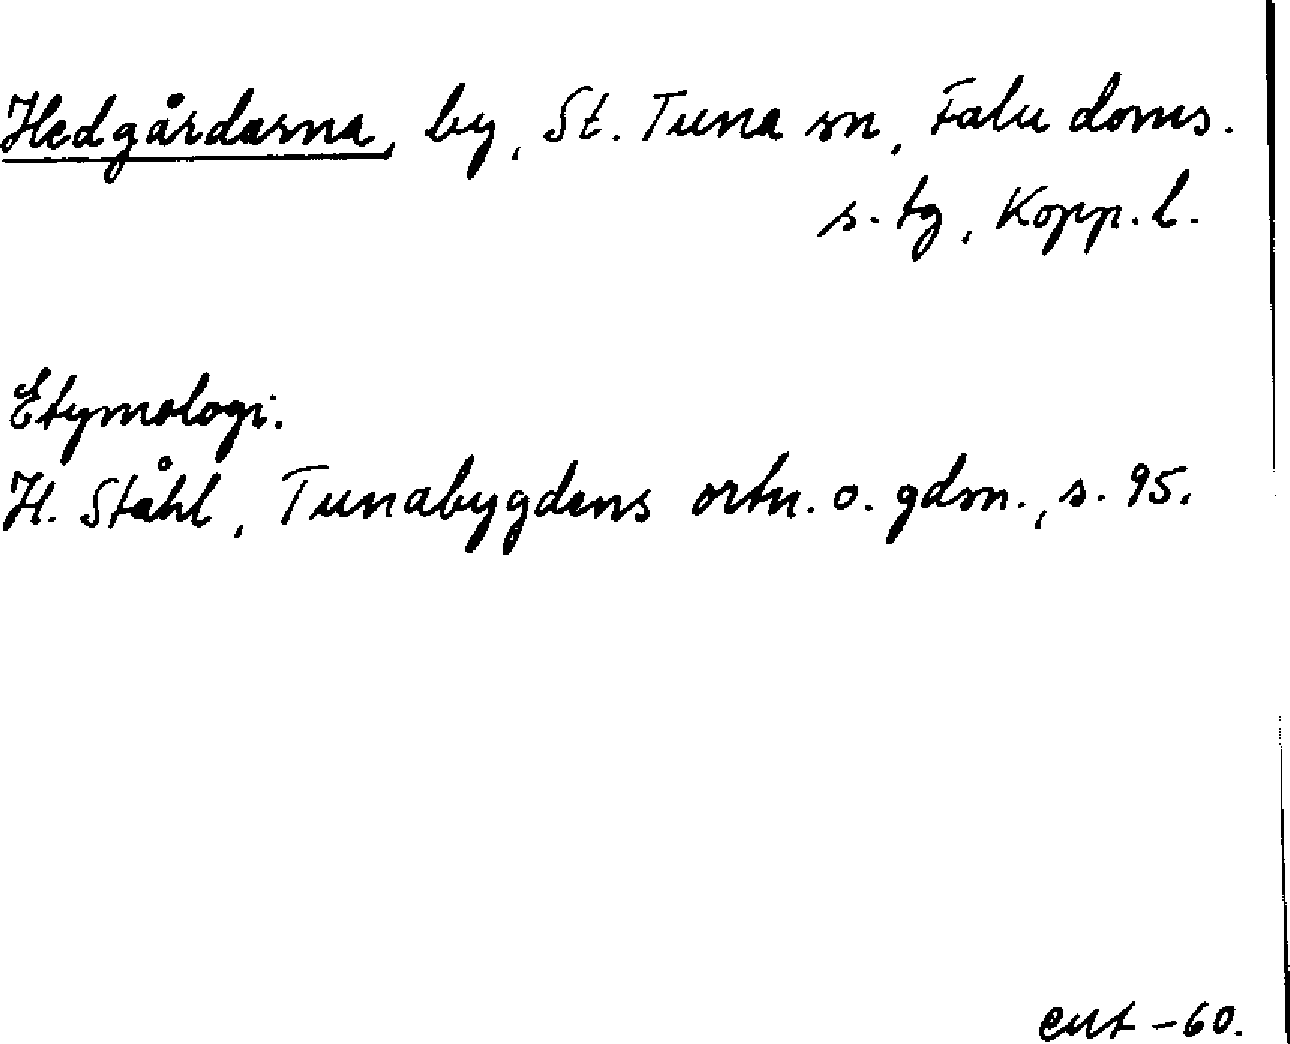 Hedgårdarna, by, St. Tuna sn, Falu doms.
s. tg, Kopp. l.
Etymologi.
H. Ståhl, Tunabygdens ortn. o. gdsn., s. 95.
-60.